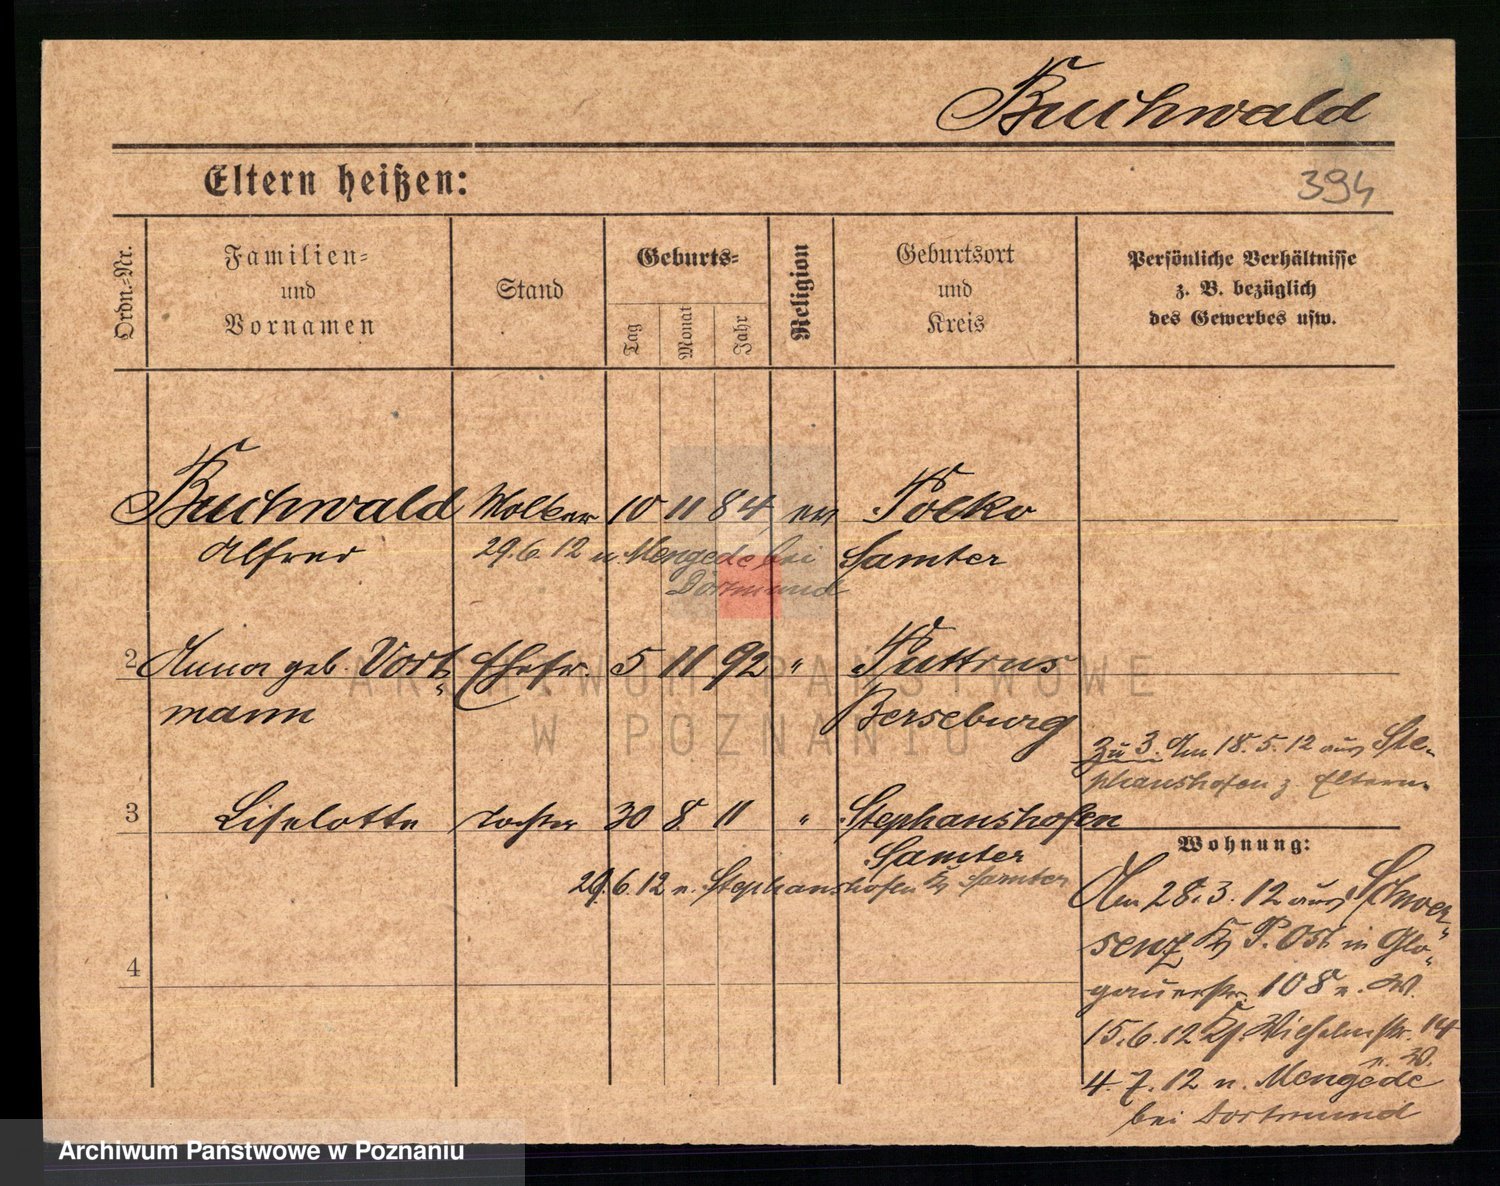 Buchwald
Eltern heißen:
394
Ordn.-Nr.
Familien-
und
Vornamen
Stand
Geburts-
Tag
Monat
Jahr
Religion
Geburtsort
und
Kreis
Persönliche Verhältnisse
z. B. bezüglich
des Gewerbes usw.
Buchwald Molker 10 11 84 ev
Alfred 29.6.12 n. Mengede bei Samter
Dortmund
2 Anna geb. Vort- Ehefr. 5 11 92 "
mann Berseburg
Zu 3. Am 18.5.12 aus Ste-
phanshofen z. Eltern
3 Liselotte Tochter 30 8 11 " Stephanshofen
Samter
29.6.12 n. Stephanshofen Kr. Samter
4
Wohnung:
Am 28.3.12 aus Schwer-
senz Kr P. Ost in Glo-
gauerstr. 108 n. W.
15.6.12 Wilhelmstr. 14
n. W.
4.7.12 n. Mengede
bei Dortmund
ARCHIWUM PAŃSTWOWE
W POZNANIU
Archiwum Państwowe w Poznaniu